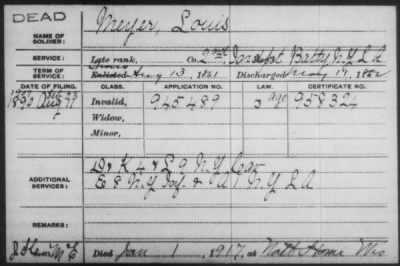 DEAD
NAME OF SOLDIER: Meyer, Louis
SERVICE: Late rank, Co. 2nd Indpt Batty N.Y. L A
TERM OF SERVICE: Enlisted Aug 13, 1861 Discharged May 19, 1862
DATE OF FILING. CLASS. APPLICATION NO. LAW. CERTIFICATE NO.
Invalid, 945489 958324
Widow,
Minor,
ADDITIONAL SERVICES: K 4 & L 9 N.Y. Cav
E 8 N.Y. Inf. & A 1 N.Y. L A
REMARKS:
Died Jan 1, 1917, at Natl Home Wis